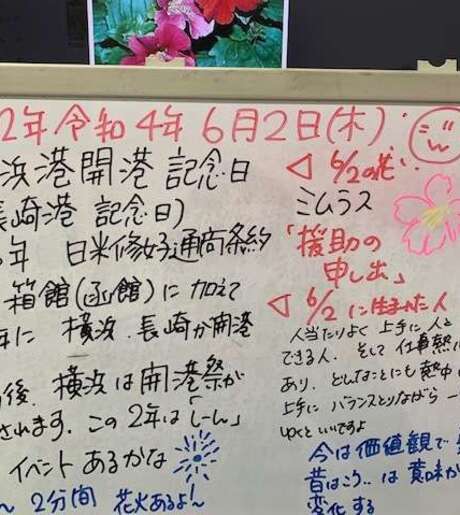 2年 令和4年 6月2日(木)
浜港開港 記念日
長崎港 記念日)
年 日米修好通商条約
箱館(函館)に 加えて
年に 横浜、長崎が開港
後、横浜は開港祭が
されます。この2年は「しーん」
イベント あるかな
2分間 花火あるよ〜
◁ 6/2の花
ミムラス
「援助の
申し出」
◁ 6/2 に生まれた人
人当たりよく 上手に 人と
できる人、そして 仕事熱
あり、どんなことにも 熱中
上手に バランスとりながら
ゆくといいですよ
今は価値観で
昔はこう‥は 意味が
変化する